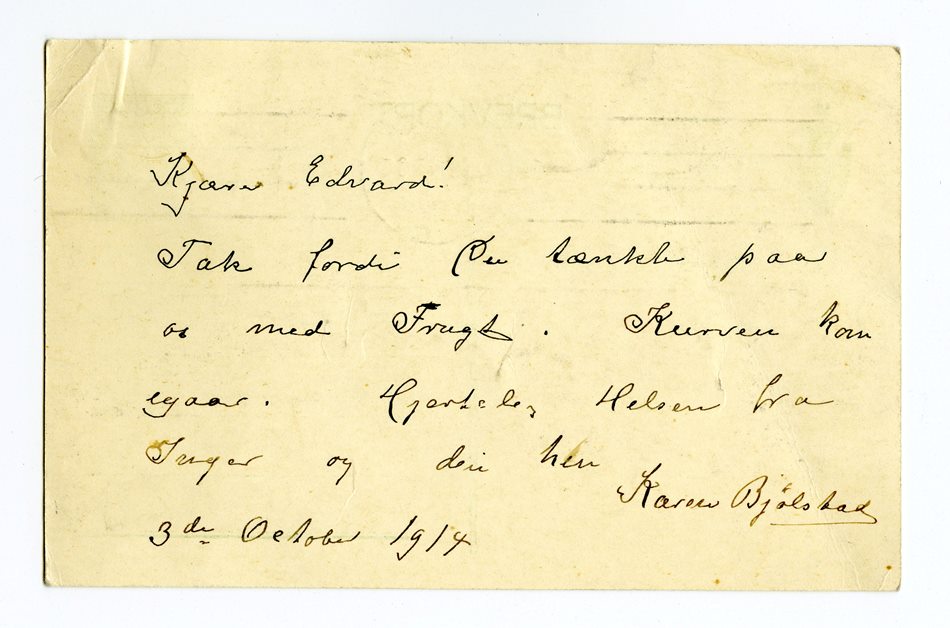 Kjære Edvard!
Tak fordi Du tænkte paa
os med Frugt. Kurven kom
igaar. Hjertelig Helsen fra
Inger og din hen
Karen Bjölstad
3de October 1914